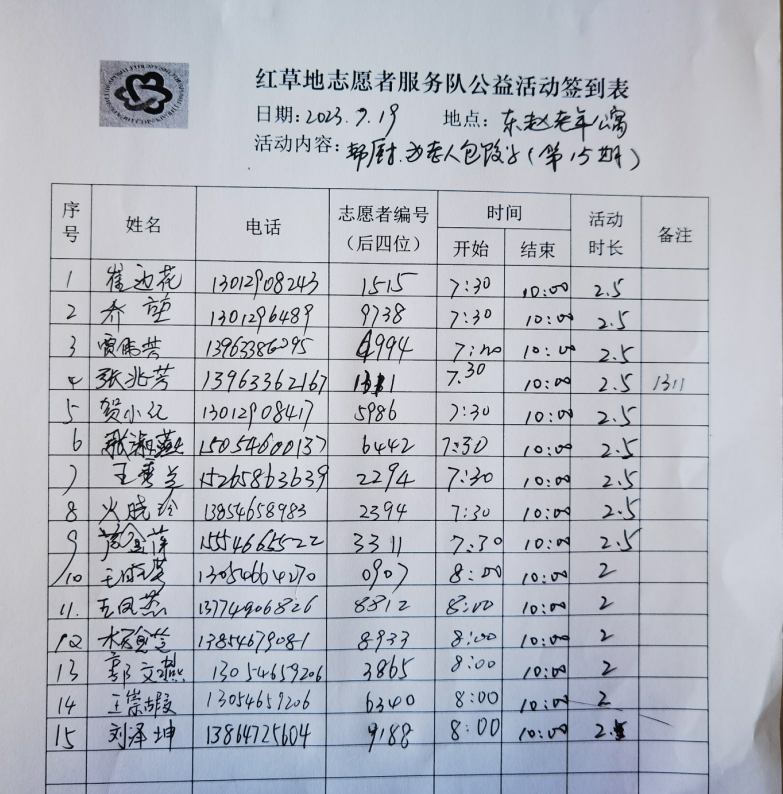 红草地志愿者服务队公益活动签到表
日期:2023.7.19 地点:东赵老年公寓
活动内容:帮厨.为老人包饺子(第15期)
序号 姓名 电话 志愿者编号(后四位) 时间 开始 结束 活动时长 备注
1 崔迎花 13012908243 1515 7:30 10:00 2.5
2 乔 1301296489 9738 7:30 10:00 2.5
3 贾 芳 13963386295 4994 10:00 2.5
4 张兆芳 13963362167 1311 7.30 10:00 2.5 1311
5 贺小红 13012908417 5986 7:30 10:00 2.5
6 张淑燕 15054600137 6442 7:30 10:00 2.5
7 王秀兰 15265863639 2294 7:30 10:00 2.5
8 火晓玲 13854658983 2394 7:30 10:00 2.5
9 萍 15554665522 3311 7:30 10:00 2.5
10 王 13054664270 0907 8:00 10:00 2
11. 王凤燕 13774906826 8812 8:00 10:00 2
12 13854679081 8933 8:00 10:00 2
13 郭文燕 13054659206 3865 8:00 10:00 2
14 王崇霞 13054659206 6340 8:00 10:00 2
15 刘泽坤 13864725604 9188 8:00 10:00 2